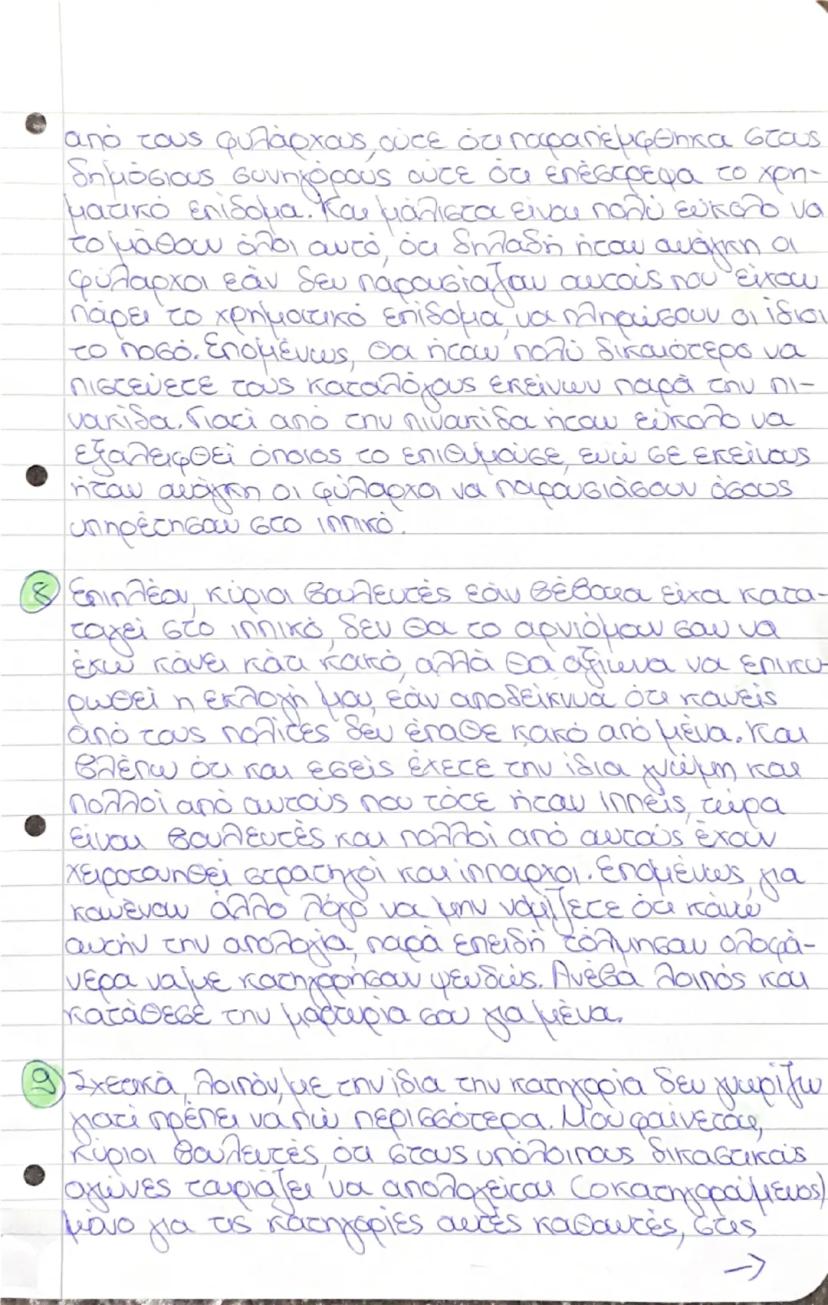 από τους φυλάρχους, ούτε ότι παραπέμφθηκα στους
δημόσιους συνηγόρους ούτε ότι επέστρεψα το χρη-
ματικό επίδομα. Και μάλιστα είναι πολύ εύκολο να
το μάθουν όλοι αυτό, ότι δηλαδή ήταν ανάγκη οι
φύλαρχοι εάν δεν παρουσίαζαν αυτούς που είχαν
πάρει το χρηματικό επίδομα, να πληρώσουν οι ίδιοι
το ποσό. Επομένως, θα ήταν πολύ δικαιότερο να
πιστεύετε τους καταλόγους εκείνων παρά την πι-
νακίδα. Γιατί από την πινακίδα ήταν εύκολο να
εξαλειφθεί όποιος το επιθυμούσε, ενώ σε εκείνους
ήταν ανάγκη οι φύλαρχοι να παρουσιάσουν όσους
υπηρέτησαν στο ιππικό.
8 Επιπλέον, κύριοι βουλευτές εάν βέβαια είχα κατα-
ταγεί στο ιππικό, δεν θα το αρνιόμουν σαν να
έχω κάνει κάτι κακό, αλλά θα αξίωνα να επικυ-
ρωθεί η εκλογή μου, εάν αποδείκνυα ότι κανείς
από τους πολίτες δεν έπαθε κακό από μένα. Και
βλέπω ότι και εσείς έχετε την ίδια γνώμη και
πολλοί από αυτούς που τότε ήταν ιππείς, τώρα
είναι βουλευτές και πολλοί από αυτούς έχουν
χειροτονηθεί στρατηγοί και ίππαρχοι. Επομένως, για
κανέναν άλλο λόγο να μην νομίζετε ότι κάνω
αυτήν την απολογία, παρά επειδή τόλμησαν ολοφά-
νερα να με κατηγορήσουν ψευδώς. Ανέβα λοιπός και
κατάθεσε την μαρτυρία σου για μένα.
9 Σχετικά, λοιπόν, με την ίδια την κατηγορία δεν γνωρίζω
γιατί πρέπει να πω περισσότερα. Μου φαίνεται,
κύριοι βουλευτές, ότι στους υπόλοιπους δικαστικούς
αγώνες ταιριάζει να απολογείται (ο κατηγορούμενος)
μόνο για τις κατηγορίες αυτές καθαυτές, στις
→